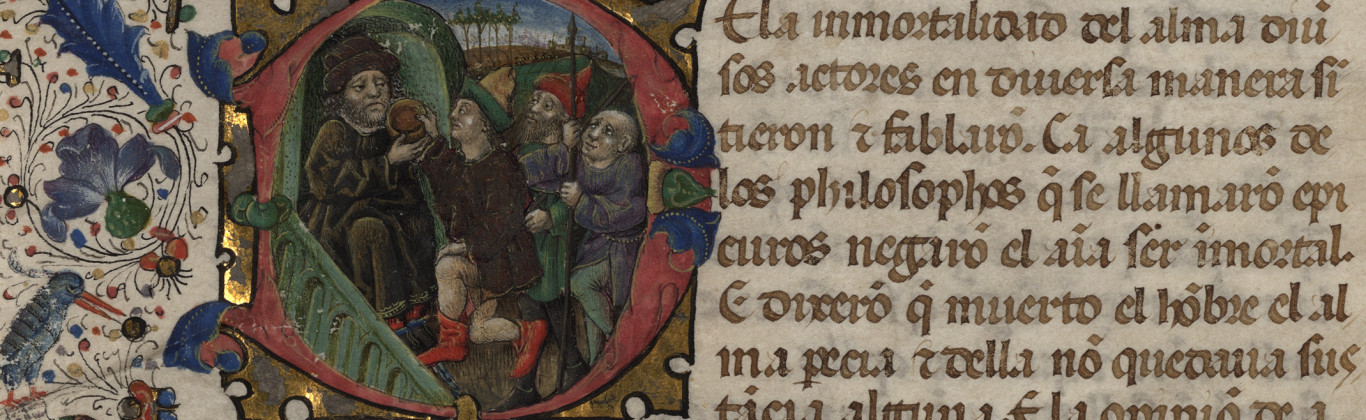 Ela inmortalidad del alma diũ
sos actores en diuersa manera sĩ
tieron ⁊ fablarõ. Ca algunos de
los philosophos q̃ se llamarõ epi
curos negarõ el aĩa ser inmortal.
E dixerõ q̃ muerto el hõbre el al
ma pecia ⁊ della nõ quedaua sus
tãcia alguna. E la opiniõ de a